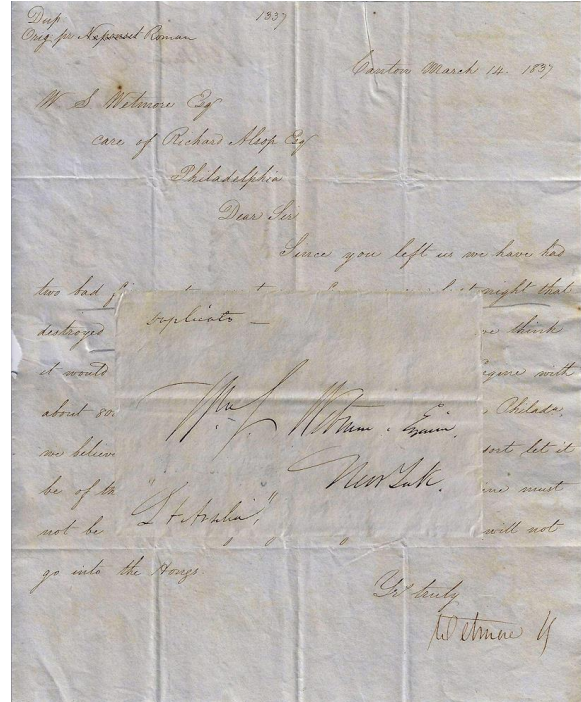 Dup 1837
Orig. pr Roman
Canton March 14. 1837
W S Wetmore Esq
care of Richard Alsop Esq
Philadelphia
Dear Sir
Since you left us we have had
two bad night that
destroyed we think
it would with
about Philada,
we believe sort let it
be of must
not be will not
go into the Hongs
Yrs truly
Wetmore
Duplicate
Wm S. Wetmore Esquire.
New York.